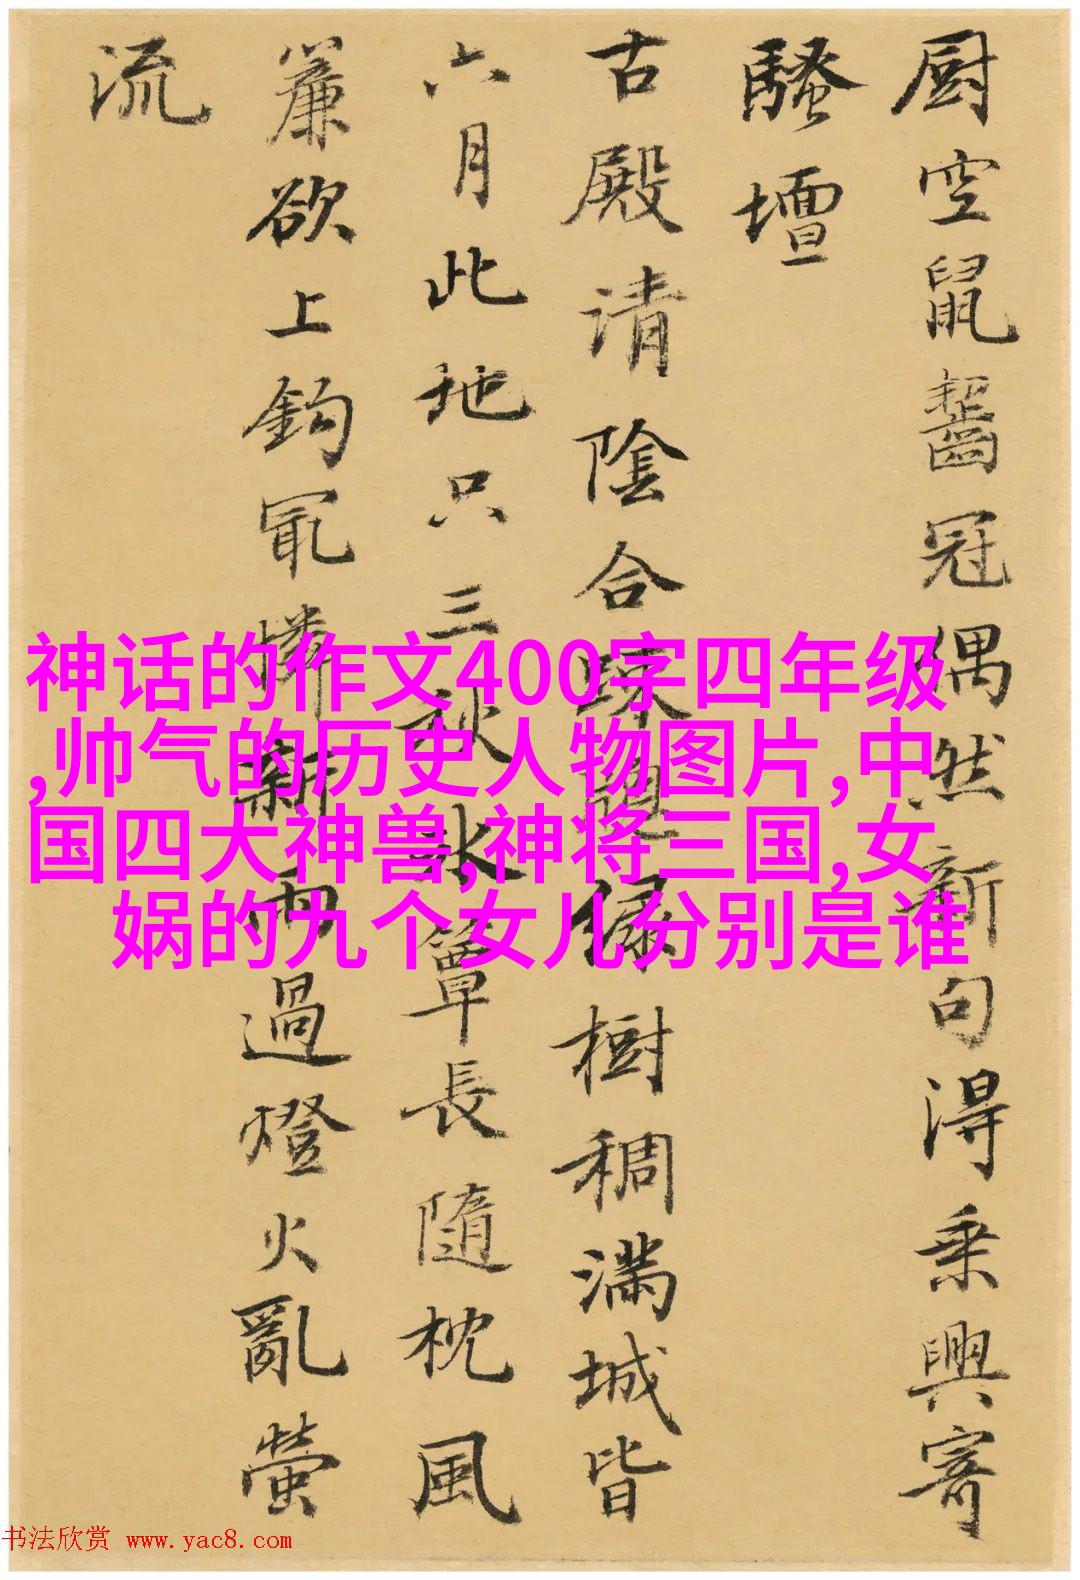 厨空鼠齧冠偶然新句得乘興寄
騷壇
古殿请陰合踈熒緑樹稠满城皆
六月此地只三秋冰簟長隨枕風
簾欲上鈎冣憐新雨過燈火亂螢
流
神话的作文400字四年级
,帅气的历史人物图片,中
国四大神兽,神将三国,女
娲的九个女儿分别是谁
书法欣赏 www.yac8.com